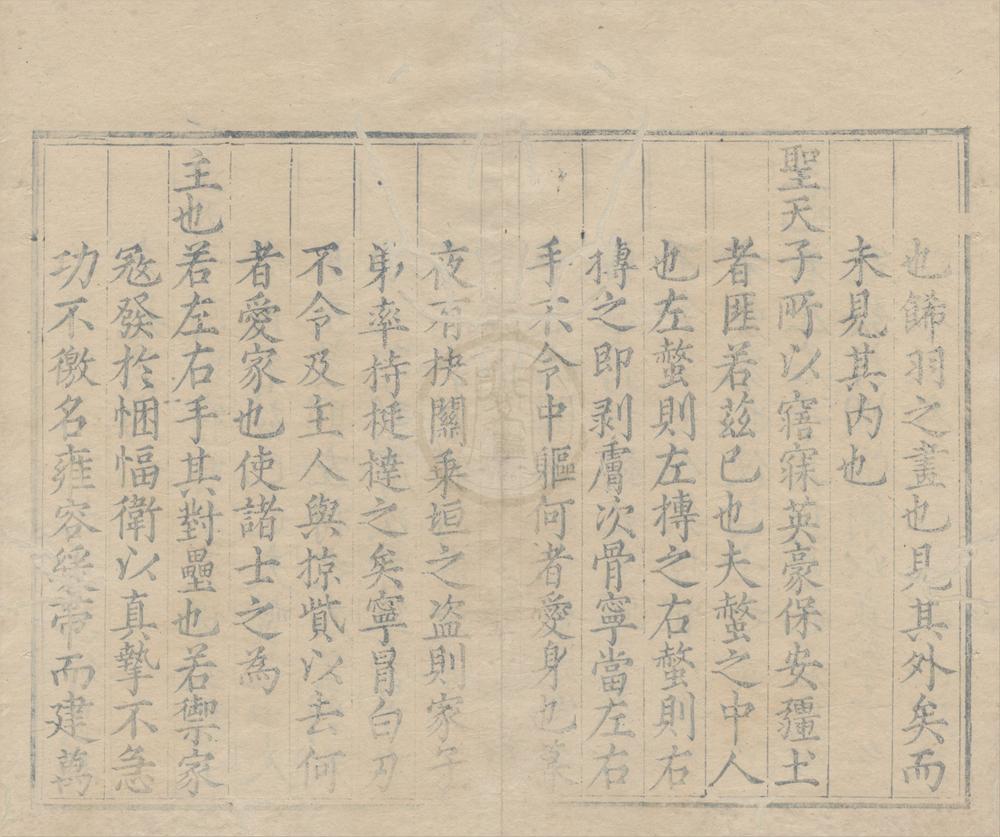 也餙羽之畫也見其外矣而
未見其内也
聖天子所以寤寐英豪保安疆土
者匪若茲已也夫螫之中人
也左螫則左摶之右螫則右
摶之即剥膚次骨寧當左右
手不令中軀何者愛身也
夜有抉關乘垣之盗則家
弟率持梃撻之矣寧冐白刃
不令及主人與掠貲以去何
者愛家也使諸士之為
主也若左右手其對壘也若禦家
宼發於悃愊衛以真摯不急
功不徼名雍容緩帶而建萬